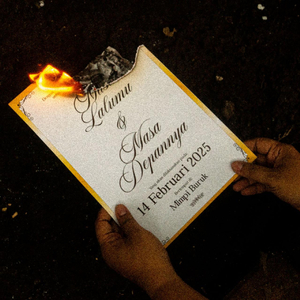 Lalumu
&
Masa
Depannya
14 Februari 2025
Mimpi Buruk